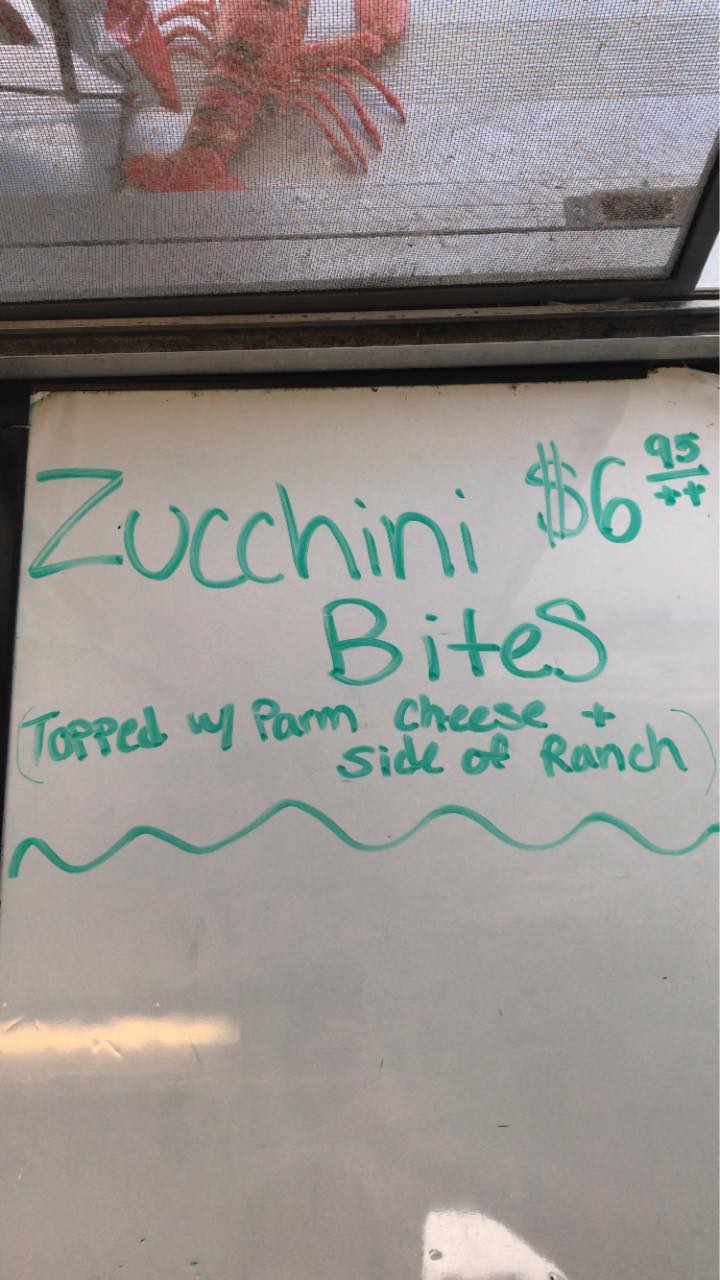 Zucchini $6 95/++
Bites
(Topped w/ Parm Cheese +
side of Ranch)